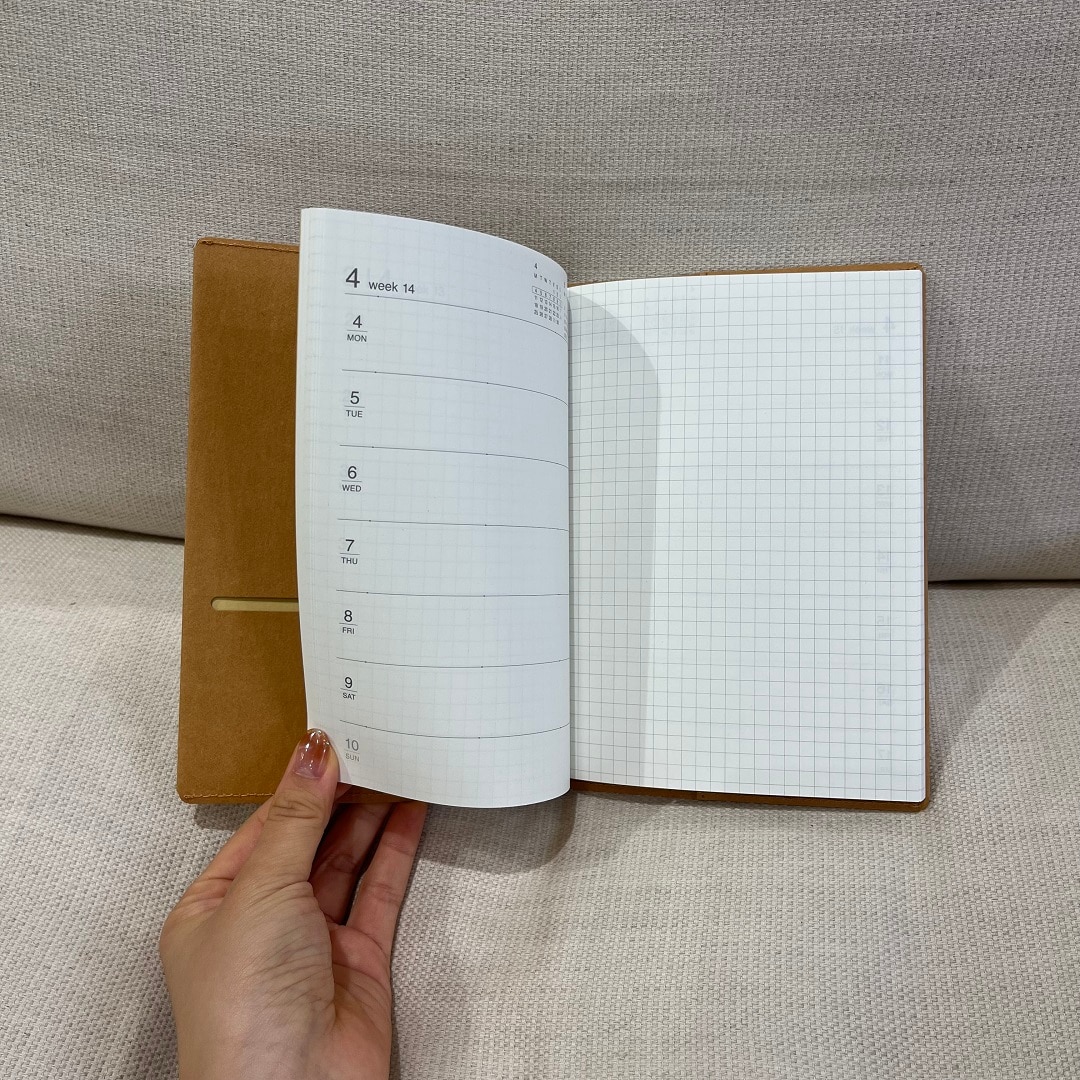 4 week 14
4
M T W T F S
4
MON
5
TUE
6
WED
7
THU
8
FRI
9
SAT
10
SUN